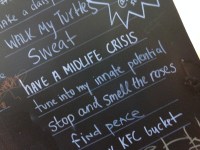 a daily
WALK MY Turtle
Sweat
HAVE A MIDLIFE CRISIS
tune into my innate potential
stop and smell the roses
find peace
KFC bucket